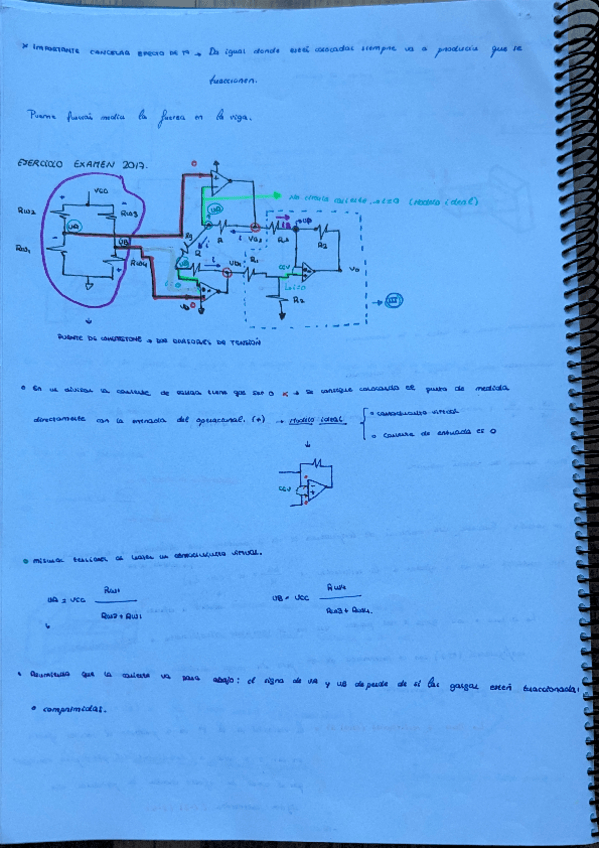 * IMPORTANTE CANCELAR EFECTO DE Tª → Da igual donde estén colocadas siempre va a producir que se
traccionen.
Puente fuerzas medía la fuerza en la viga.
EJERCICIO EXAMEN 2017.
VCC
RW2
RW3
UA
UB
RW1
RW4
No circula corriente → i=0 (Modelo ideal)
PUENTE DE WHEATSTONE → DOS DIVISORES DE TENSIÓN
R
R
i
R1
R2
R2
CCV
i=0
Vo
III
o En un divisor la corriente de salida tiene que ser 0 → Se consigue colocando el punto de medida
directamente con la entrada del operacional. (+) → Modelo ideal
= cortocircuito virtual
o corriente de entrada es 0
CCV
o Mismas tensiones al haber un cortocircuito virtual.
UA = VCC RW1 / RW2 + RW1
UB = VCC RW4 / RW3 + RW4.
• Asumiendo que la corriente va para abajo: el signo de UA y UB depende de si las galgas estén traccionadas
o comprimidas.